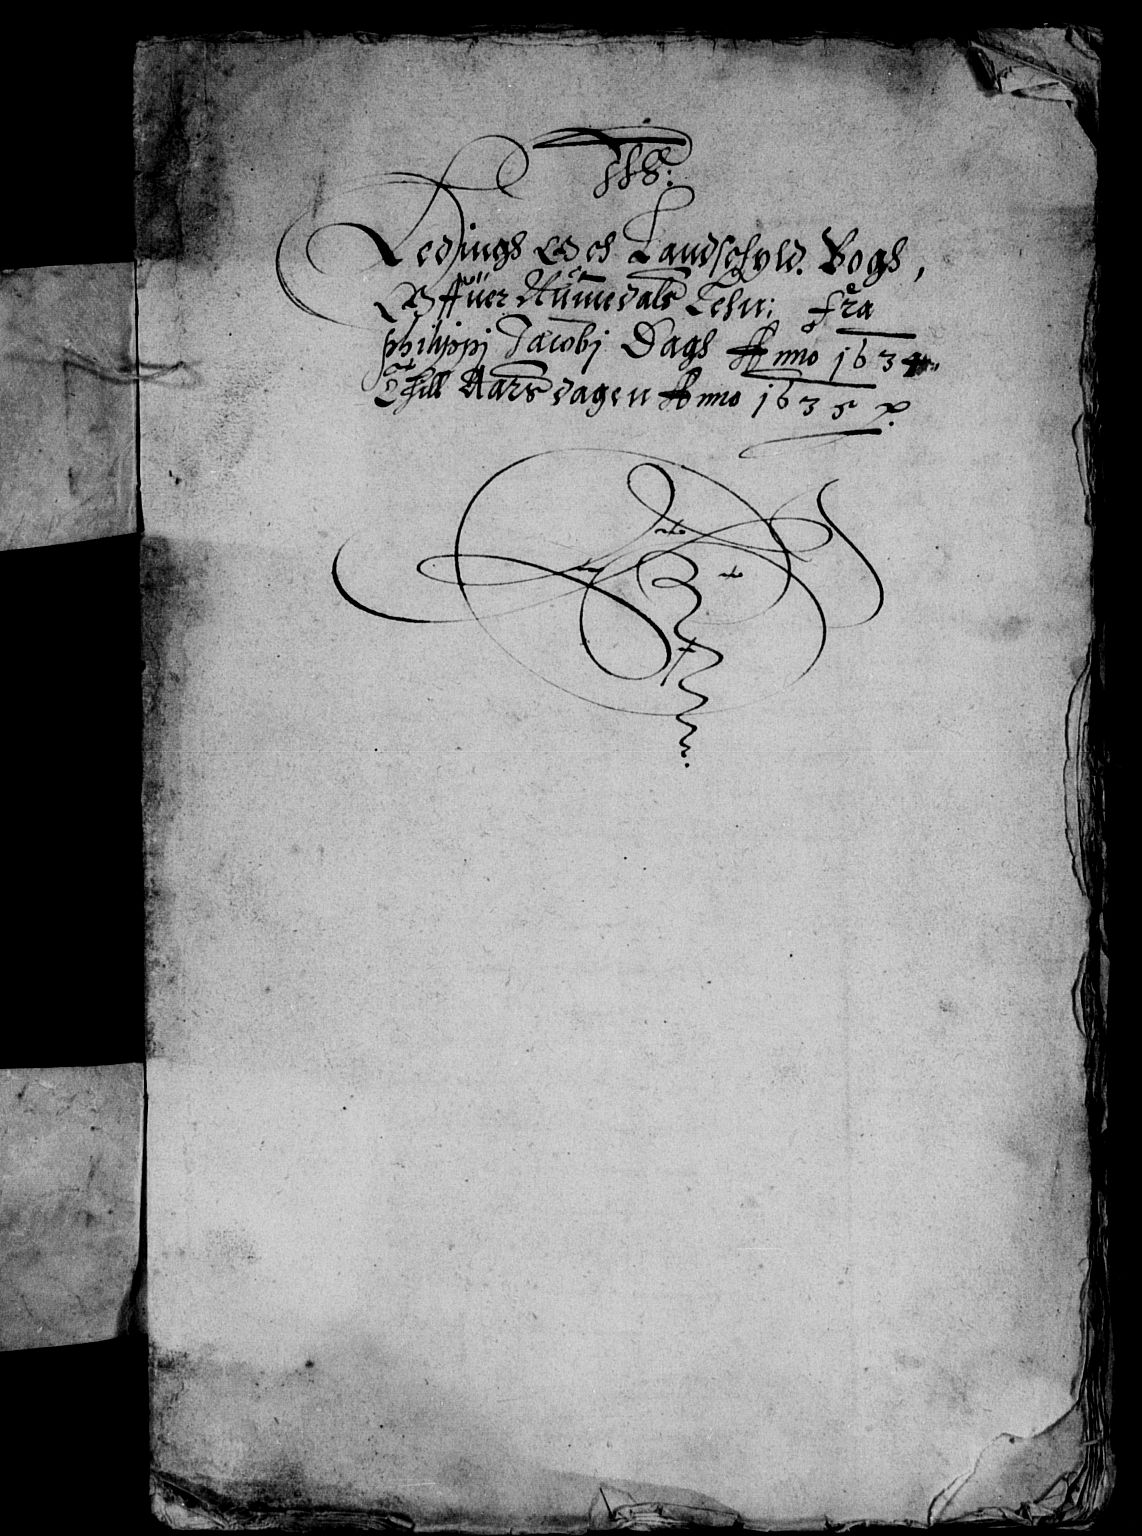 JHS:
Ledings Och Landschyld Bogh,
Offuer Nummedals Lehn: fra
Philippi Jacobj Dagh Anno 1634
Thill Aarsdagen Anno 1635